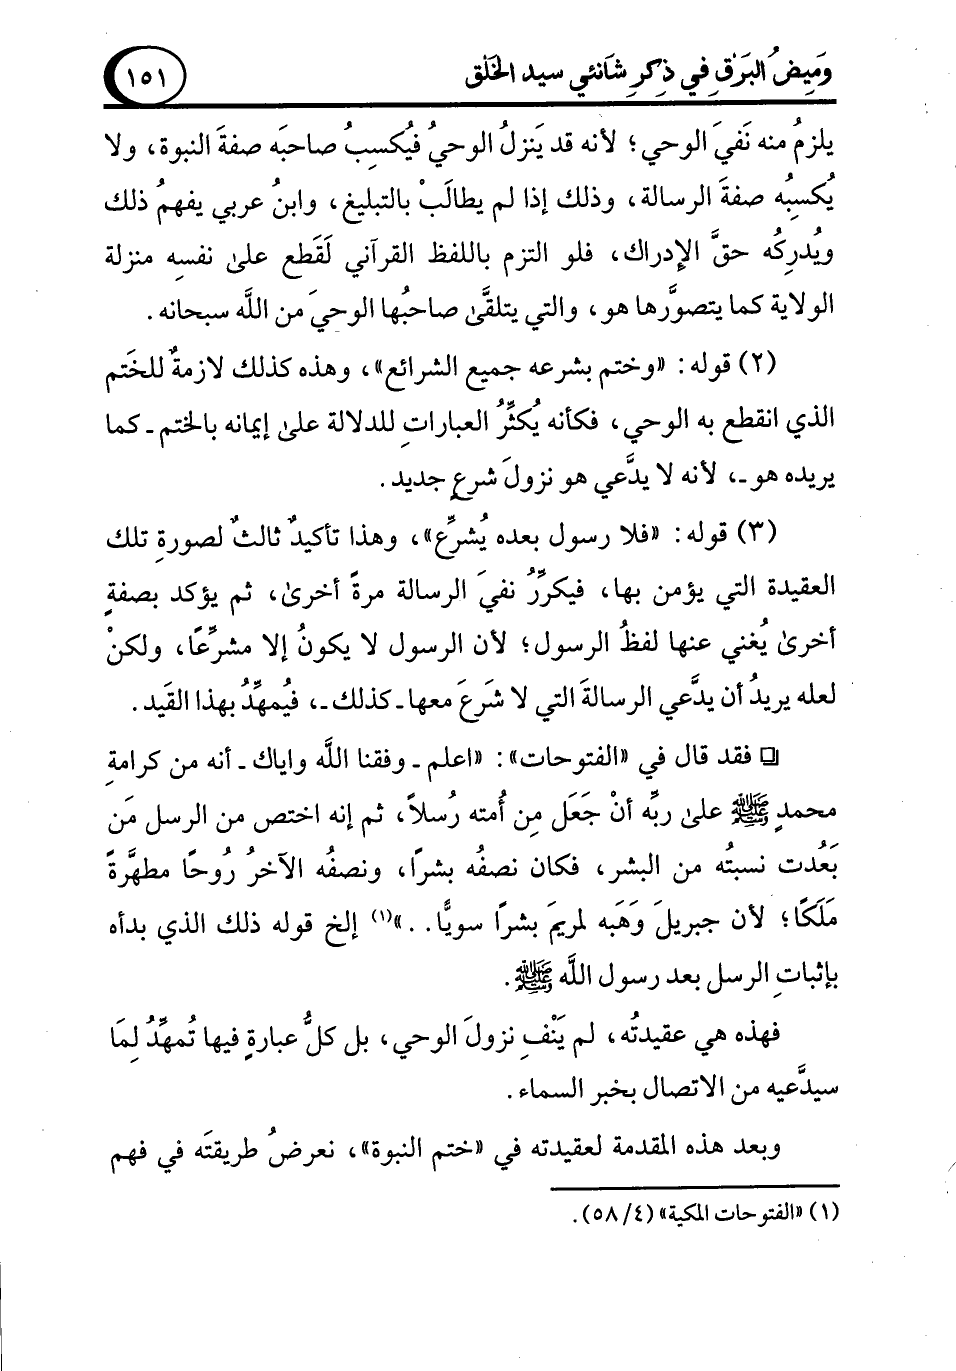 وَمِيضُ البَرْقِ فِي ذِكرِ شَانئي سيد الخَلْق
١٥١
يلزمُ منه نَفيَ الوحي؛ لأنه قد يَنزلُ الوحيُ فيُكسِبُ صاحبَه صفةَ النبوة، ولا
يُكسِبُه صفةَ الرسالة، وذلك إذا لم يطالَبْ بالتبليغ، وابنُ عربي يفهمُ ذلك
ويُدرِكُه حقَّ الإدراك، فلو التزم باللفظ القرآني لَقَطع علىٰ نفسِه منزلة
الولاية كما يتصوَّرها هو، والتي يتلقَّىٰ صاحبُها الوحيَ من اللَّه سبحانه.
(٢) قوله: «وختم بشرعه جميع الشرائع»، وهذه كذلك لازمةٌ للختم
الذي انقطع به الوحي، فكأنه يُكثِّرُ العباراتِ للدلالة علىٰ إيمانه بالختم ـ كما
يريده هو ـ، لأنه لا يدَّعي هو نزولَ شرعٍ جديد.
(٣) قوله: «فلا رسول بعده يُشرِّع»، وهذا تأكيدٌ ثالثٌ لصورةِ تلك
العقيدة التي يؤمن بها، فيكرِّرُ نفيَ الرسالة مرةً أخرىٰ، ثم يؤكد بصفةٍ
أخرىٰ يُغني عنها لفظُ الرسول؛ لأن الرسول لا يكونُ إلا مشرِّعًا، ولكنْ
لعله يريدُ أن يدَّعي الرسالةَ التي لا شَرعَ معها ـ كذلك ـ، فيُمهِّدُ بهذا القَيد.
❏ فقد قال في «الفتوحات»: «اعلم ـ وفقنا اللَّه وإياك ـ أنه من كرامةِ
محمدٍ ﷺ علىٰ ربِّه أنْ جَعَل مِن أُمته رُسلاً، ثم إنه اختص من الرسل مَن
بَعُدت نسبتُه من البشر، فكان نصفُه بشرًا، ونصفُه الآخرُ رُوحًا مطهَّرةً
مَلَكًا؛ لأن جبريلَ وَهَبه لمريمَ بشرًا سويًّا..»(١) إلخ قوله ذلك الذي بدأه
بإثباتِ الرسل بعد رسول اللَّه ﷺ.
فهذه هي عقيدتُه، لم يَنْفِ نزولَ الوحي، بل كلُّ عبارةٍ فيها تُمهِّدُ لِمَا
سيدَّعيه من الاتصال بخبر السماء.
وبعد هذه المقدمة لعقيدته في «ختم النبوة»، نعرضُ طريقتَه في فهم
(١) «الفتوحات المكية» (٤/ ٥٨).